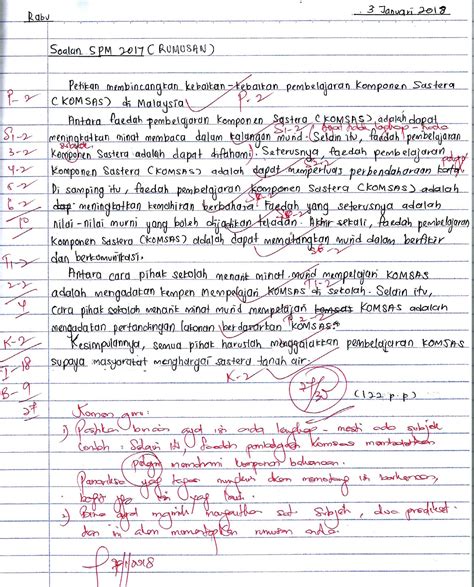 Rabu
3 Januari 2018
Soalan SPM 2017 (RUMUSAN)
Petikan membincangkan kebaikan-kebaikan pembelajaran Komponen Sastera
P-2
(KOMSAS) di Malaysia
P-2
Antara faedah pembelajaran Komponen Sastera (KOMSAS) adalah dapat
S1-2
meningkatkan minat membaca dalam kalangan murid. Selain itu, faedah pembelajaran
3-2
Komponen Sastera adalah dapat difahami. Seterusnya faedah pembelajaran
4-2
Komponen Sastera (KOMSAS) adalah dapat memperluas perbendaharaan
5-2
Di samping itu, faedah pembelajaran Komponen Sastera (KOMSAS) adalah
6-2
dap meningkatkan kemahiran berbahasa. Faedah yang seterusnya adalah
10
nilai-nilai murni yang boleh dijadikan teladan. Akhir sekali, faedah pembelajaran
Komponen Sastera (KOMSAS) adalah dapat mematangkan murid dalam berfikir
T1-2
dan berkomunikasi.
S6-2
Antara cara pihak sekolah menarik minat murid mempelajari KOMSAS
2-2
adalah mengadakan kempen mempelajari KOMSAS di sekolah. Selain itu,
T1-2
4
Cara pihak sekolah menarik minat murid mempelajari komsas KOMSAS adalah
mengadakan pertandingan lakonan berdasarkan KOMSAS.
2-2
K-2
Kesimpulannya, semua pihak haruslah menggalakkan pembelajaran KOMSAS
I-18
supaya masyarakat menghargai sastera tanah air.
K-2
B-9
27
27/30
(122 p.p)
Komen guru:
1) Pastikan binaan ayat isi ada lengkap - mesti ada subjek
Contoh: Selain itu, faedah pembelajaran Komsas
pelajar memahami komponen
2) Bina ayat
dan isi akan memantapkan rumusan anda.
2018